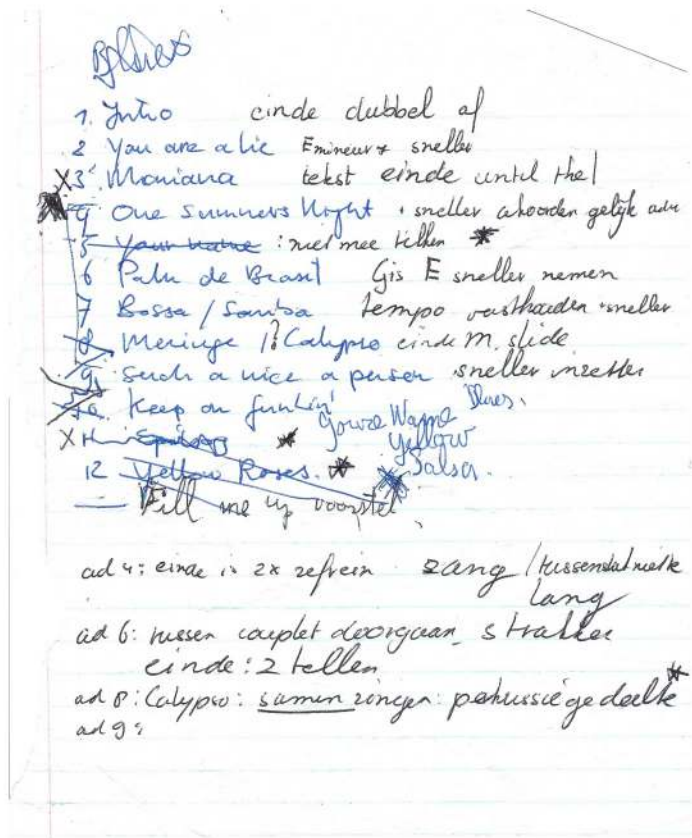 1. Intro einde dubbel af
2 You are a lie Emineur sneller
X 3 Maniana tekst einde until the
4 One summers Night sneller akoorden gelijk
5 Your name : niet mee tellen *
6 Palu de Brasil Gis E sneller nemen
7 Bossa / Samba tempo vasthouden sneller
8 Meringe Calypso einde M. slide
9 such a nice a person sneller inzetten
10 Keep on funkin' Blues.
X 11 * Yellow
12 Yellow Roses. * Salsa.
Fill me up voorstel
ad 4: einde is 2x refrein zang /
lang
ad 6: tussen couplet doorgaan, strakker
einde: 2 tellen
ad 8: Calypso: samen zingen: perkussiegedeelte *
ad 9: